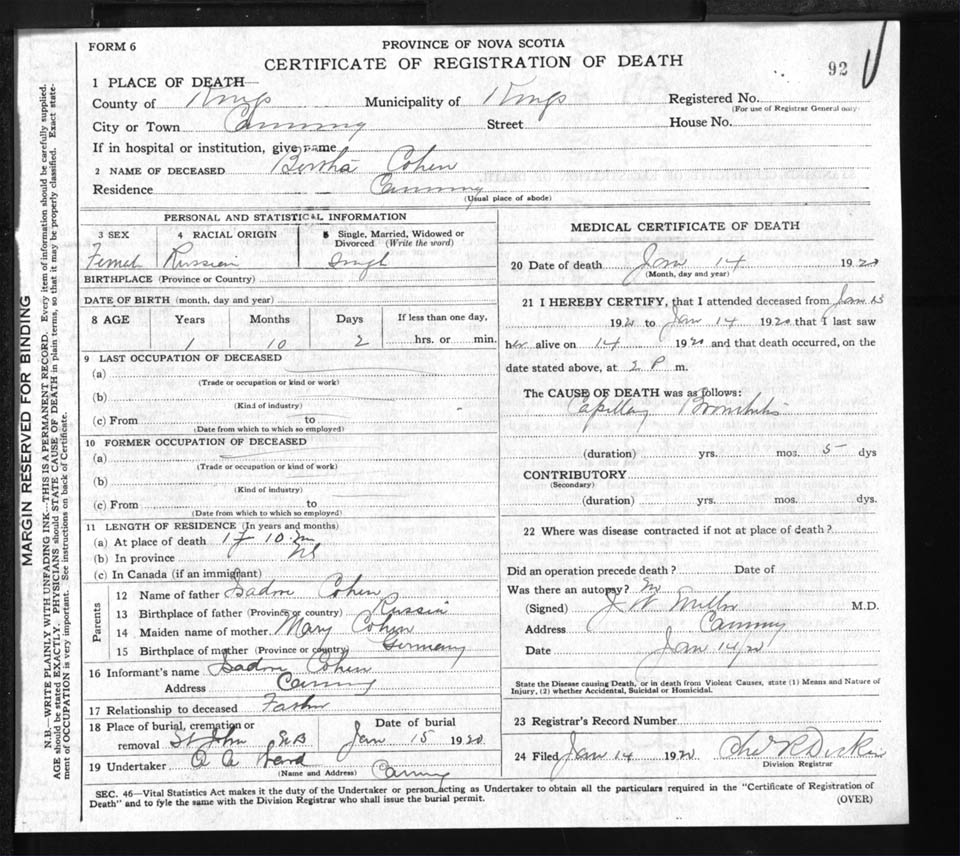 FORM 6
PROVINCE OF NOVA SCOTIA
CERTIFICATE OF REGISTRATION OF DEATH
92
1 PLACE OF DEATH
County of Kings Municipality of Kings Registered No.
(For use of Registrar General only)
City or Town Canning Street House No.
If in hospital or institution, give name
2 NAME OF DECEASED Bertha Cohen
Residence Canning
(Usual place of abode)
MARGIN RESERVED FOR BINDING
N.B.—WRITE PLAINLY WITH UNFADING INK—THIS IS A PERMANENT RECORD. Every item of information should be carefully supplied.
AGE should be stated EXACTLY. PHYSICIANS should STATE CAUSE OF DEATH in plain terms, so that it may be properly classified. Exact state-
ment of OCCUPATION is very important. See instructions on back of Certificate.
PERSONAL AND STATISTICAL INFORMATION
3 SEX 4 RACIAL ORIGIN 5 Single, Married, Widowed or
Divorced (Write the word)
Femel Russian Singl
BIRTHPLACE (Province or Country)
DATE OF BIRTH (month, day and year)
8 AGE Years Months Days If less than one day,
1 10 2 hrs. or min.
9 LAST OCCUPATION OF DECEASED
(a)
(Trade or occupation or kind or work)
(b)
(Kind of industry)
(c) From to
(Date from which to which so employed)
10 FORMER OCCUPATION OF DECEASED
(a)
(Trade or occupation or kind of work)
(b)
(Kind of industry)
(c) From to
(Date from which to which so employed)
11 LENGTH OF RESIDENCE (In years and months)
(a) At place of death 1 y 10 m
(b) In province
(c) In Canada (if an immigrant)
Parents
12 Name of father Cohen
13 Birthplace of father (Province or country) Russia
14 Maiden name of mother Mary Cohen
15 Birthplace of mother (Province or country) Germany
16 Informant's name Cohen
Address Canning
17 Relationship to deceased Father
18 Place of burial, cremation or
removal St John NB
Date of burial
Jan 15 1920
19 Undertaker
(Name and Address) Canning
MEDICAL CERTIFICATE OF DEATH
20 Date of death Jan 14 1920
(Month, day and year)
21 I HEREBY CERTIFY, that I attended deceased from Jan 13
1920 to Jan 14 1920 that I last saw
her alive on 14 1920 and that death occurred, on the
date stated above, at 2 P m.
The CAUSE OF DEATH was as follows:
Capillary Bronchitis
(duration) yrs. mos. 5 dys
CONTRIBUTORY
(Secondary)
(duration) yrs. mos. dys.
22 Where was disease contracted if not at place of death?
Did an operation precede death? Date of
Was there an autopsy?
(Signed) J W Miller M.D.
Address Canning
Date Jan 14/20
State the Disease causing Death, or in death from Violent Causes, state (1) Means and Nature of
Injury, (2) whether Accidental, Suicidal or Homicidal.
23 Registrar's Record Number
24 Filed Jan 14 1920
Division Registrar
SEC. 46—Vital Statistics Act makes it the duty of the Undertaker or person acting as Undertaker to obtain all the particulars required in the "Certificate of Registration of
Death" and to fyle the same with the Division Registrar who shall issue the burial permit.
(OVER)